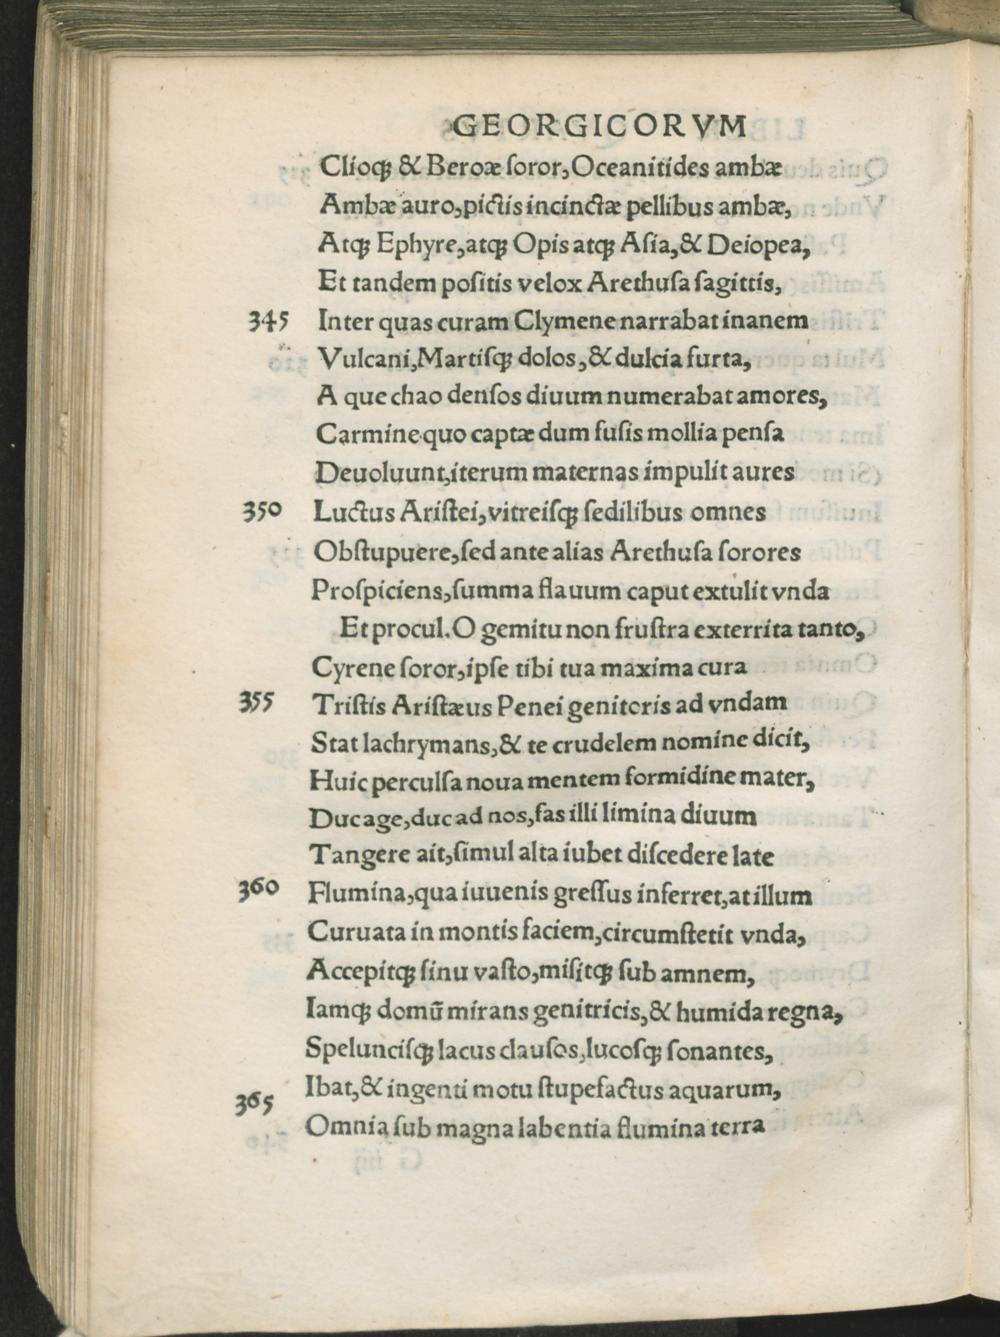 GEORGICORVM
Clioqꝫ & Beroæ ſoror, Oceanitides ambæ
Ambæ auro, pictis incinctæ pellibus ambæ,
Atqꝫ Ephyre, atqꝫ Opis atqꝫ Aſia, & Deiopea,
Et tandem poſitis velox Arethuſa ſagittis,
345 Inter quas curam Clymene narrabat inanem
Vulcani, Martiſqꝫ dolos, & dulcia furta,
A que chao denſos diuum numerabat amores,
Carmine quo captæ dum fuſis mollia penſa
Deuoluunt, iterum maternas impulit aures
350 Luctus Ariſtei, vitreiſqꝫ ſedilibus omnes
Obſtupuere, ſed ante alias Arethuſa ſorores
Proſpiciens, ſumma flauum caput extulit vnda
Et procul. O gemitu non fruſtra exterrita tanto,
Cyrene ſoror, ipſe tibi tua maxima cura
355 Triſtis Ariſtæus Penei genitoris ad vndam
Stat lachrymans, & te crudelem nomine dicit,
Huic perculſa noua mentem formidine mater,
Duc age, duc ad nos, fas illi limina diuum
Tangere ait, ſimul alta iubet diſcedere late
360 Flumina, qua iuuenis greſſus inferret, at illum
Curuata in montis faciem, circumſtetit vnda,
Accepitqꝫ ſinu vaſto, miſitqꝫ ſub amnem,
Iamqꝫ domū mirans genitricis, & humida regna,
Spelunciſqꝫ lacus clauſos, lucoſqꝫ ſonantes,
Ibat, & ingenti motu ſtupefactus aquarum,
365 Omnia ſub magna labentia flumina terra